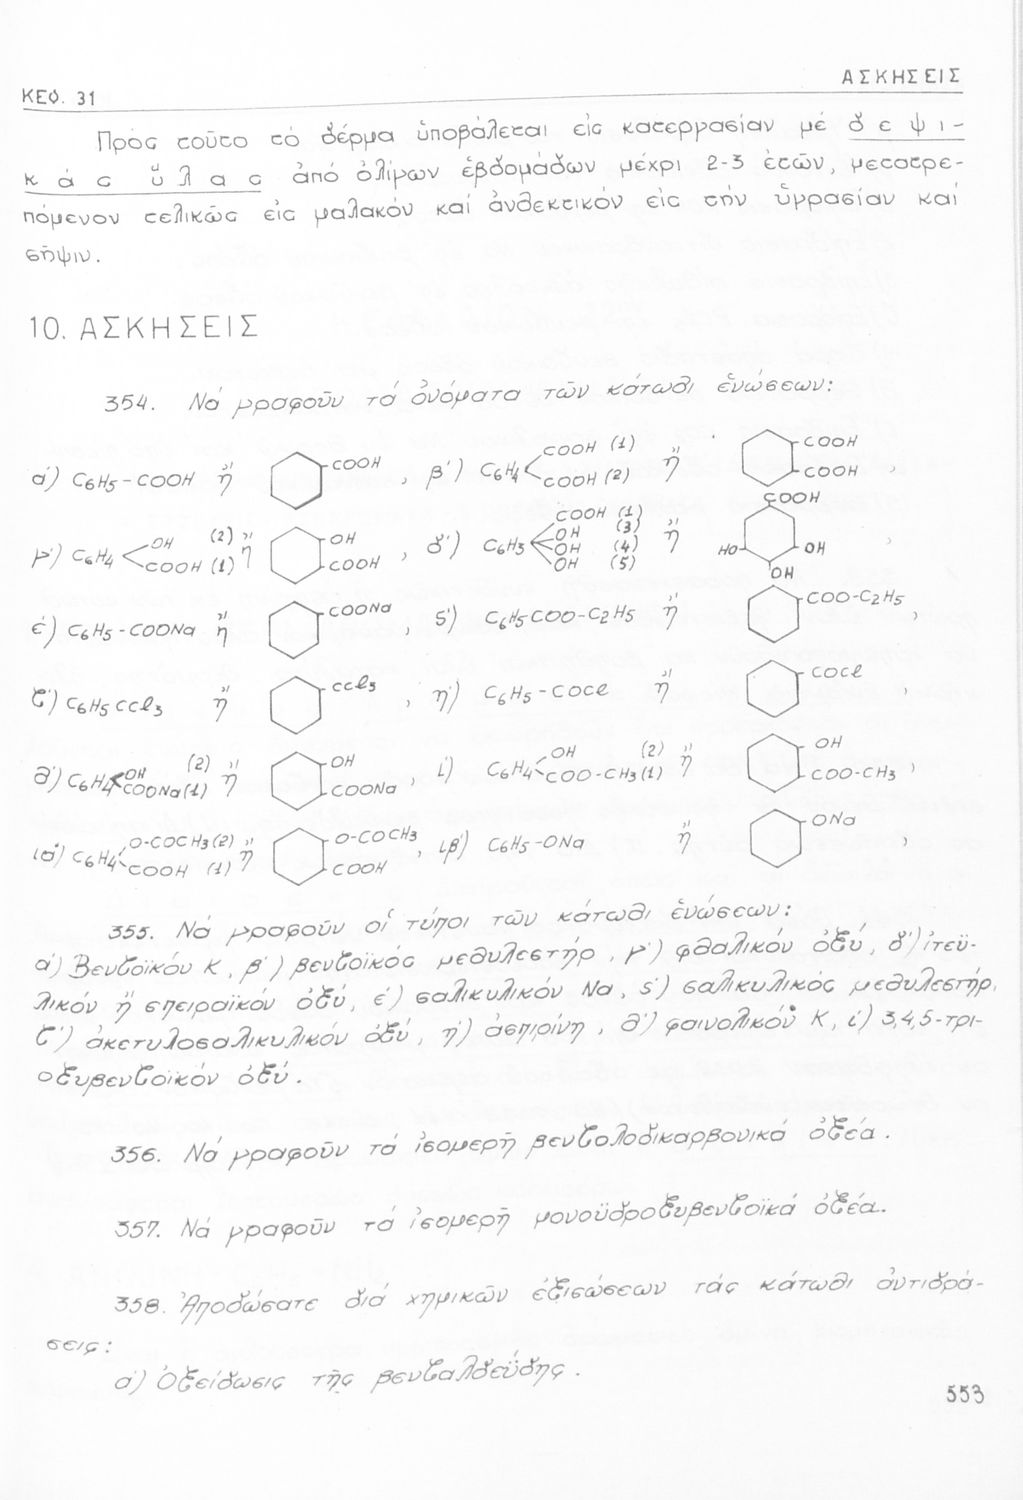 ΚΕΦ. 31
ΑΣΚΗΣΕΙΣ
Πρός τοῦτο τό δέρμα ὑποβάλεται εἰς κατεργασίαν μέ δ ε ψ ι -
κ ά ς ὕ λ α ς ἀπό ὀλίγων ἑβδομάδων μέχρι 2-3 ἐτῶν, μετατρε-
πόμενον τελικῶς εἰς μαλακόν καί ἀνθεκτικόν εἰς τήν ὑγρασίαν καί
σῆψιν.
10. ΑΣΚΗΣΕΙΣ
354. Νά γραφοῦν τά ὀνόματα τῶν κάτωθι ἑνώσεων:
α') C6H5-COOH ἤ COOH , β') C6H4 COOH (1) COOH (2) ἤ COOH COOH ,
γ') C6H4 OH (2) COOH (1) ἤ OH COOH , δ') C6H3 COOH (1) OH (3) OH (4) OH (5) ἤ COOH HO OH OH ,
ε') C6H5-COONa ἤ COONa , ς') C6H5COO-C2H5 ἤ COO-C2H5 ,
ζ') C6H5CCl3 ἤ CCl3 , η') C6H5-COCl ἤ COCl ,
θ') C6H4 OH (2) COONa(1) ἤ OH COONa , ι') C6H4 OH (2) COO-CH3(1) ἤ OH COO-CH3 ,
ια') C6H4 O-COCH3(2) COOH (1) ἤ O-COCH3 COOH , ιβ') C6H5-ONa ἤ ONa ,
355. Νά γραφοῦν οἱ τύποι τῶν κάτωθι ἑνώσεων:
α') Βενζοϊκόν Κ, β') βενζοϊκός μεθυλεστήρ, γ') φθαλικόν ὀξύ, δ') ἰτεϋ-
λικόν ἤ σπειραϊκόν ὀξύ, ε') σαλικυλικόν Να, ς') σαλικυλικός μεθυλεστήρ,
ζ') ἀκετυλοσαλικυλικόν ὀξύ, η') ἀσπιρίνη, θ') φαινολικόν Κ, ι') 3,4,5-τρι-
οξυβενζοϊκόν ὀξύ.
356. Νά γραφοῦν τά ἰσομερῆ βενζολοδικαρβονικά ὀξέα.
357. Νά γραφοῦν τά ἰσομερῆ μονοϋδροξυβενζοϊκά ὀξέα.
358. Ἀποδώσατε διά χημικῶν ἐξισώσεων τάς κάτωθι ἀντιδρά-
σεις:
α') Ὀξείδωσις τῆς βενζαλδεΰδης.
553